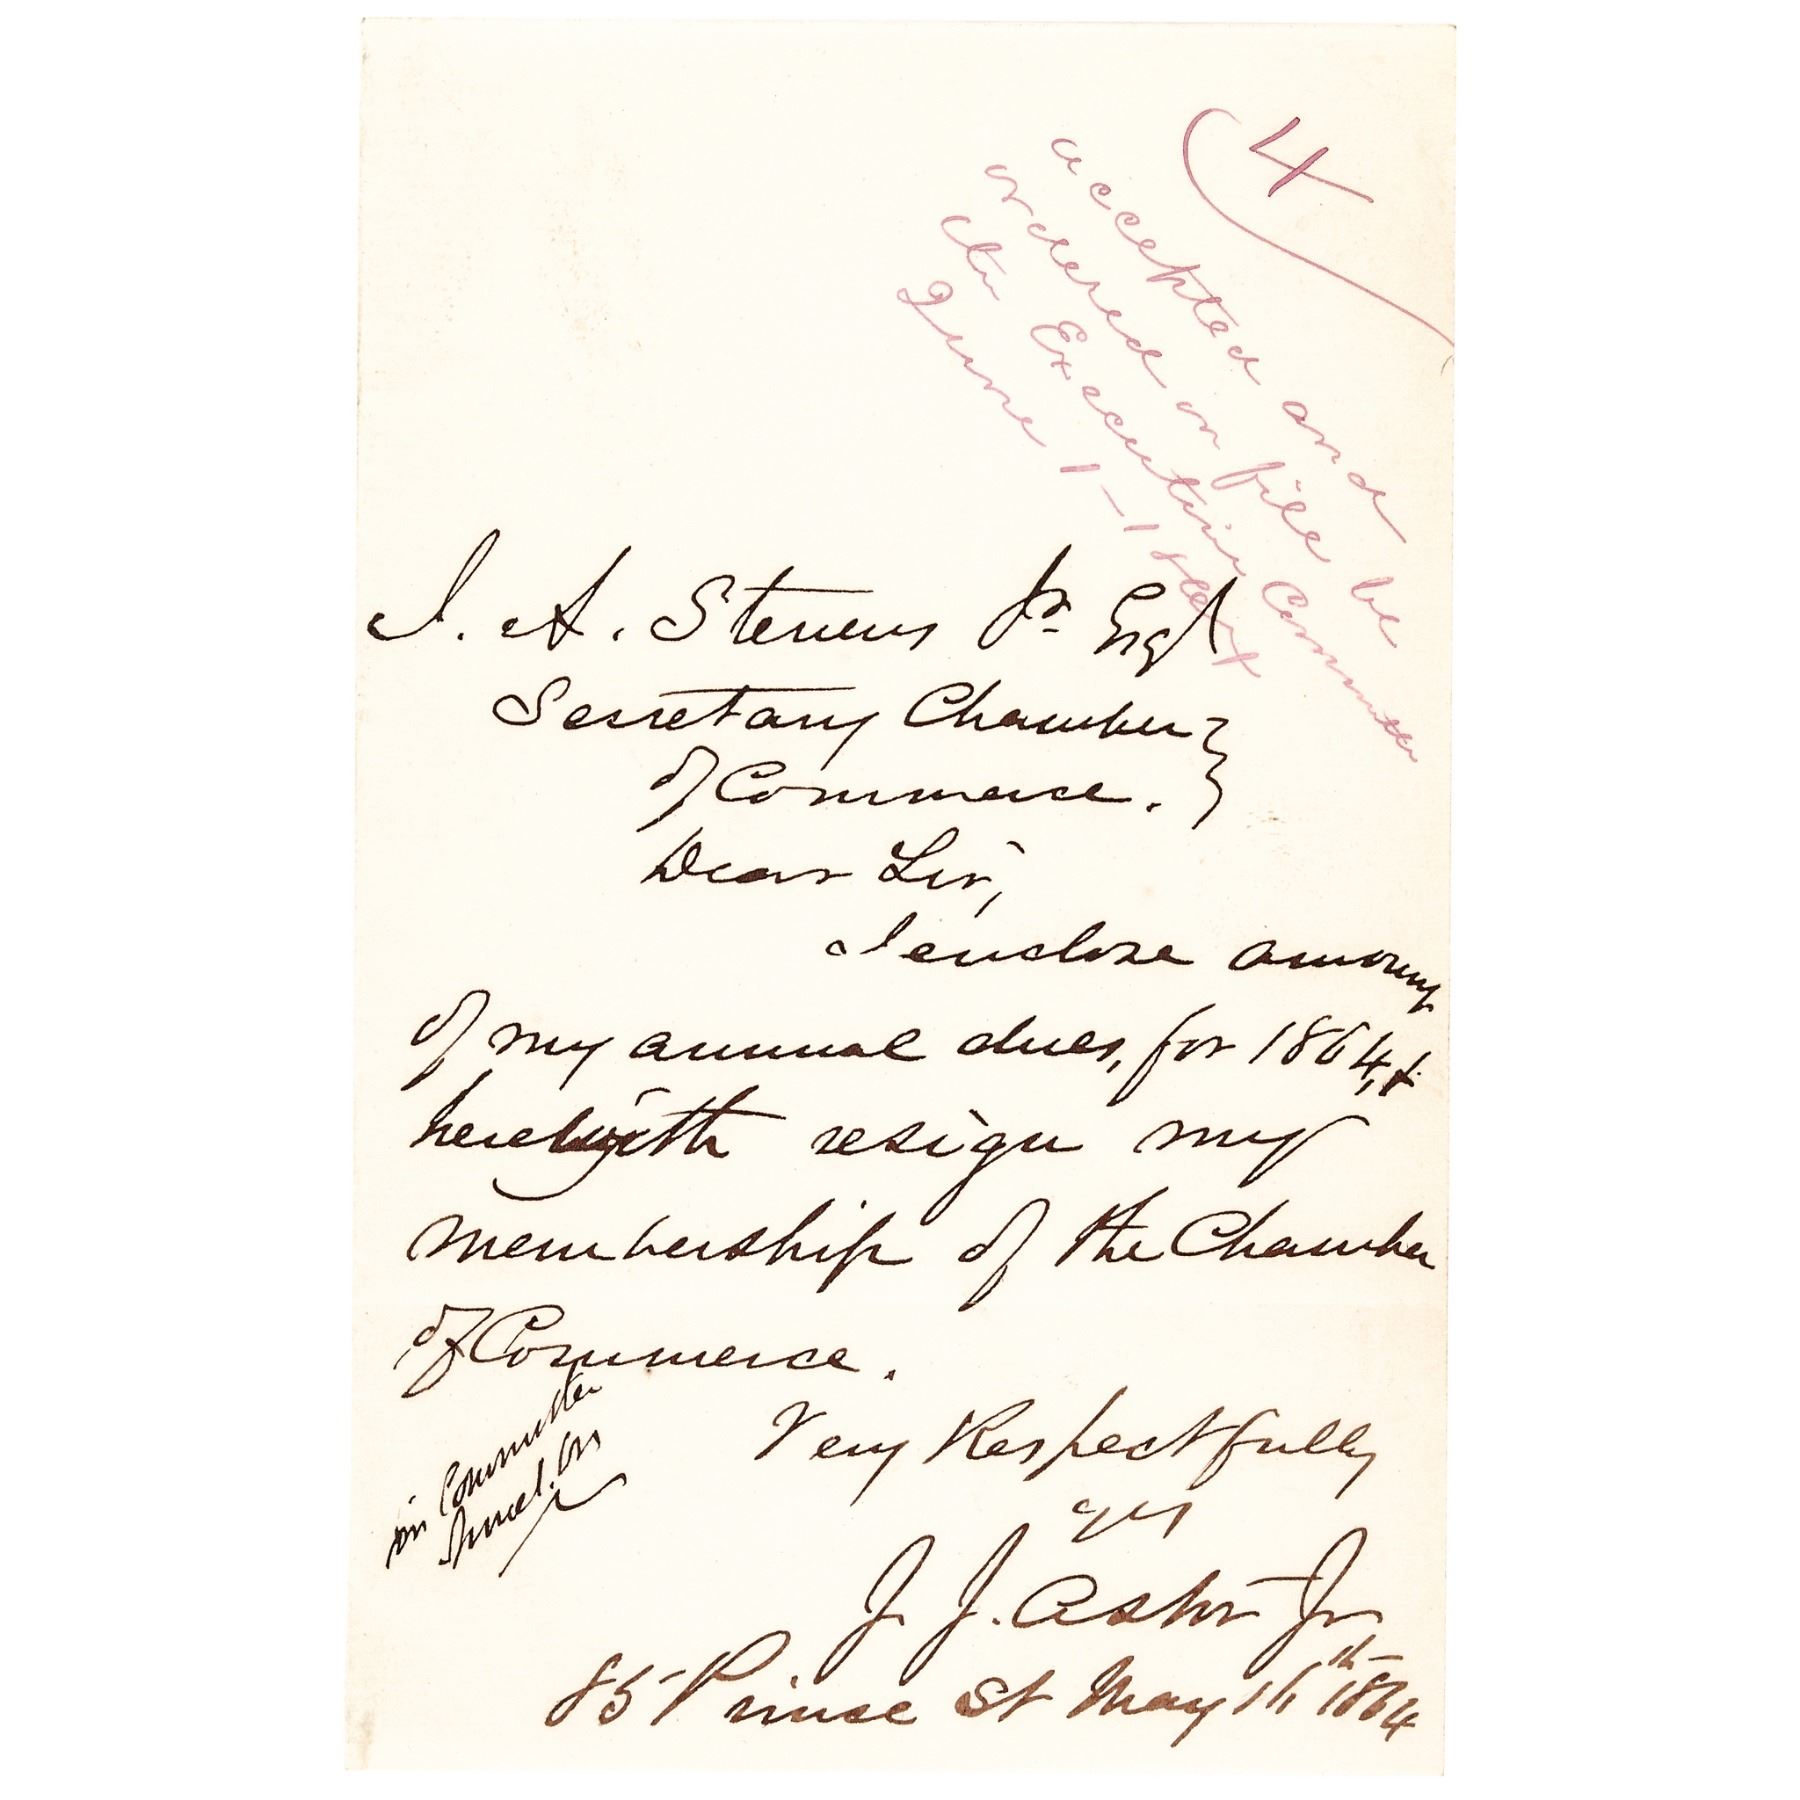 4
accepted and be
ordered on file be
the Executive Committee
June 1 - 1864
J. A. Stevens Jr Esq
Secretary Chamber
of Commerce.
Dear Sir,
I enclose amount
of my annual dues, for 1864, &
herewith resign my
membership of the Chamber
of Commerce.
in Committee
Very Respectfully
yrs
J. J. Astor Jr
85 Prince St May 16th 1864